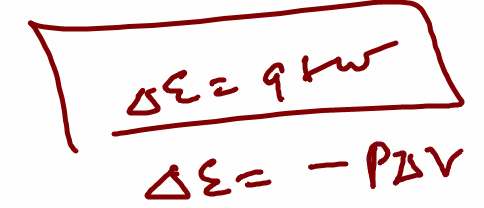 ΔE = q + w
ΔE = - PΔV